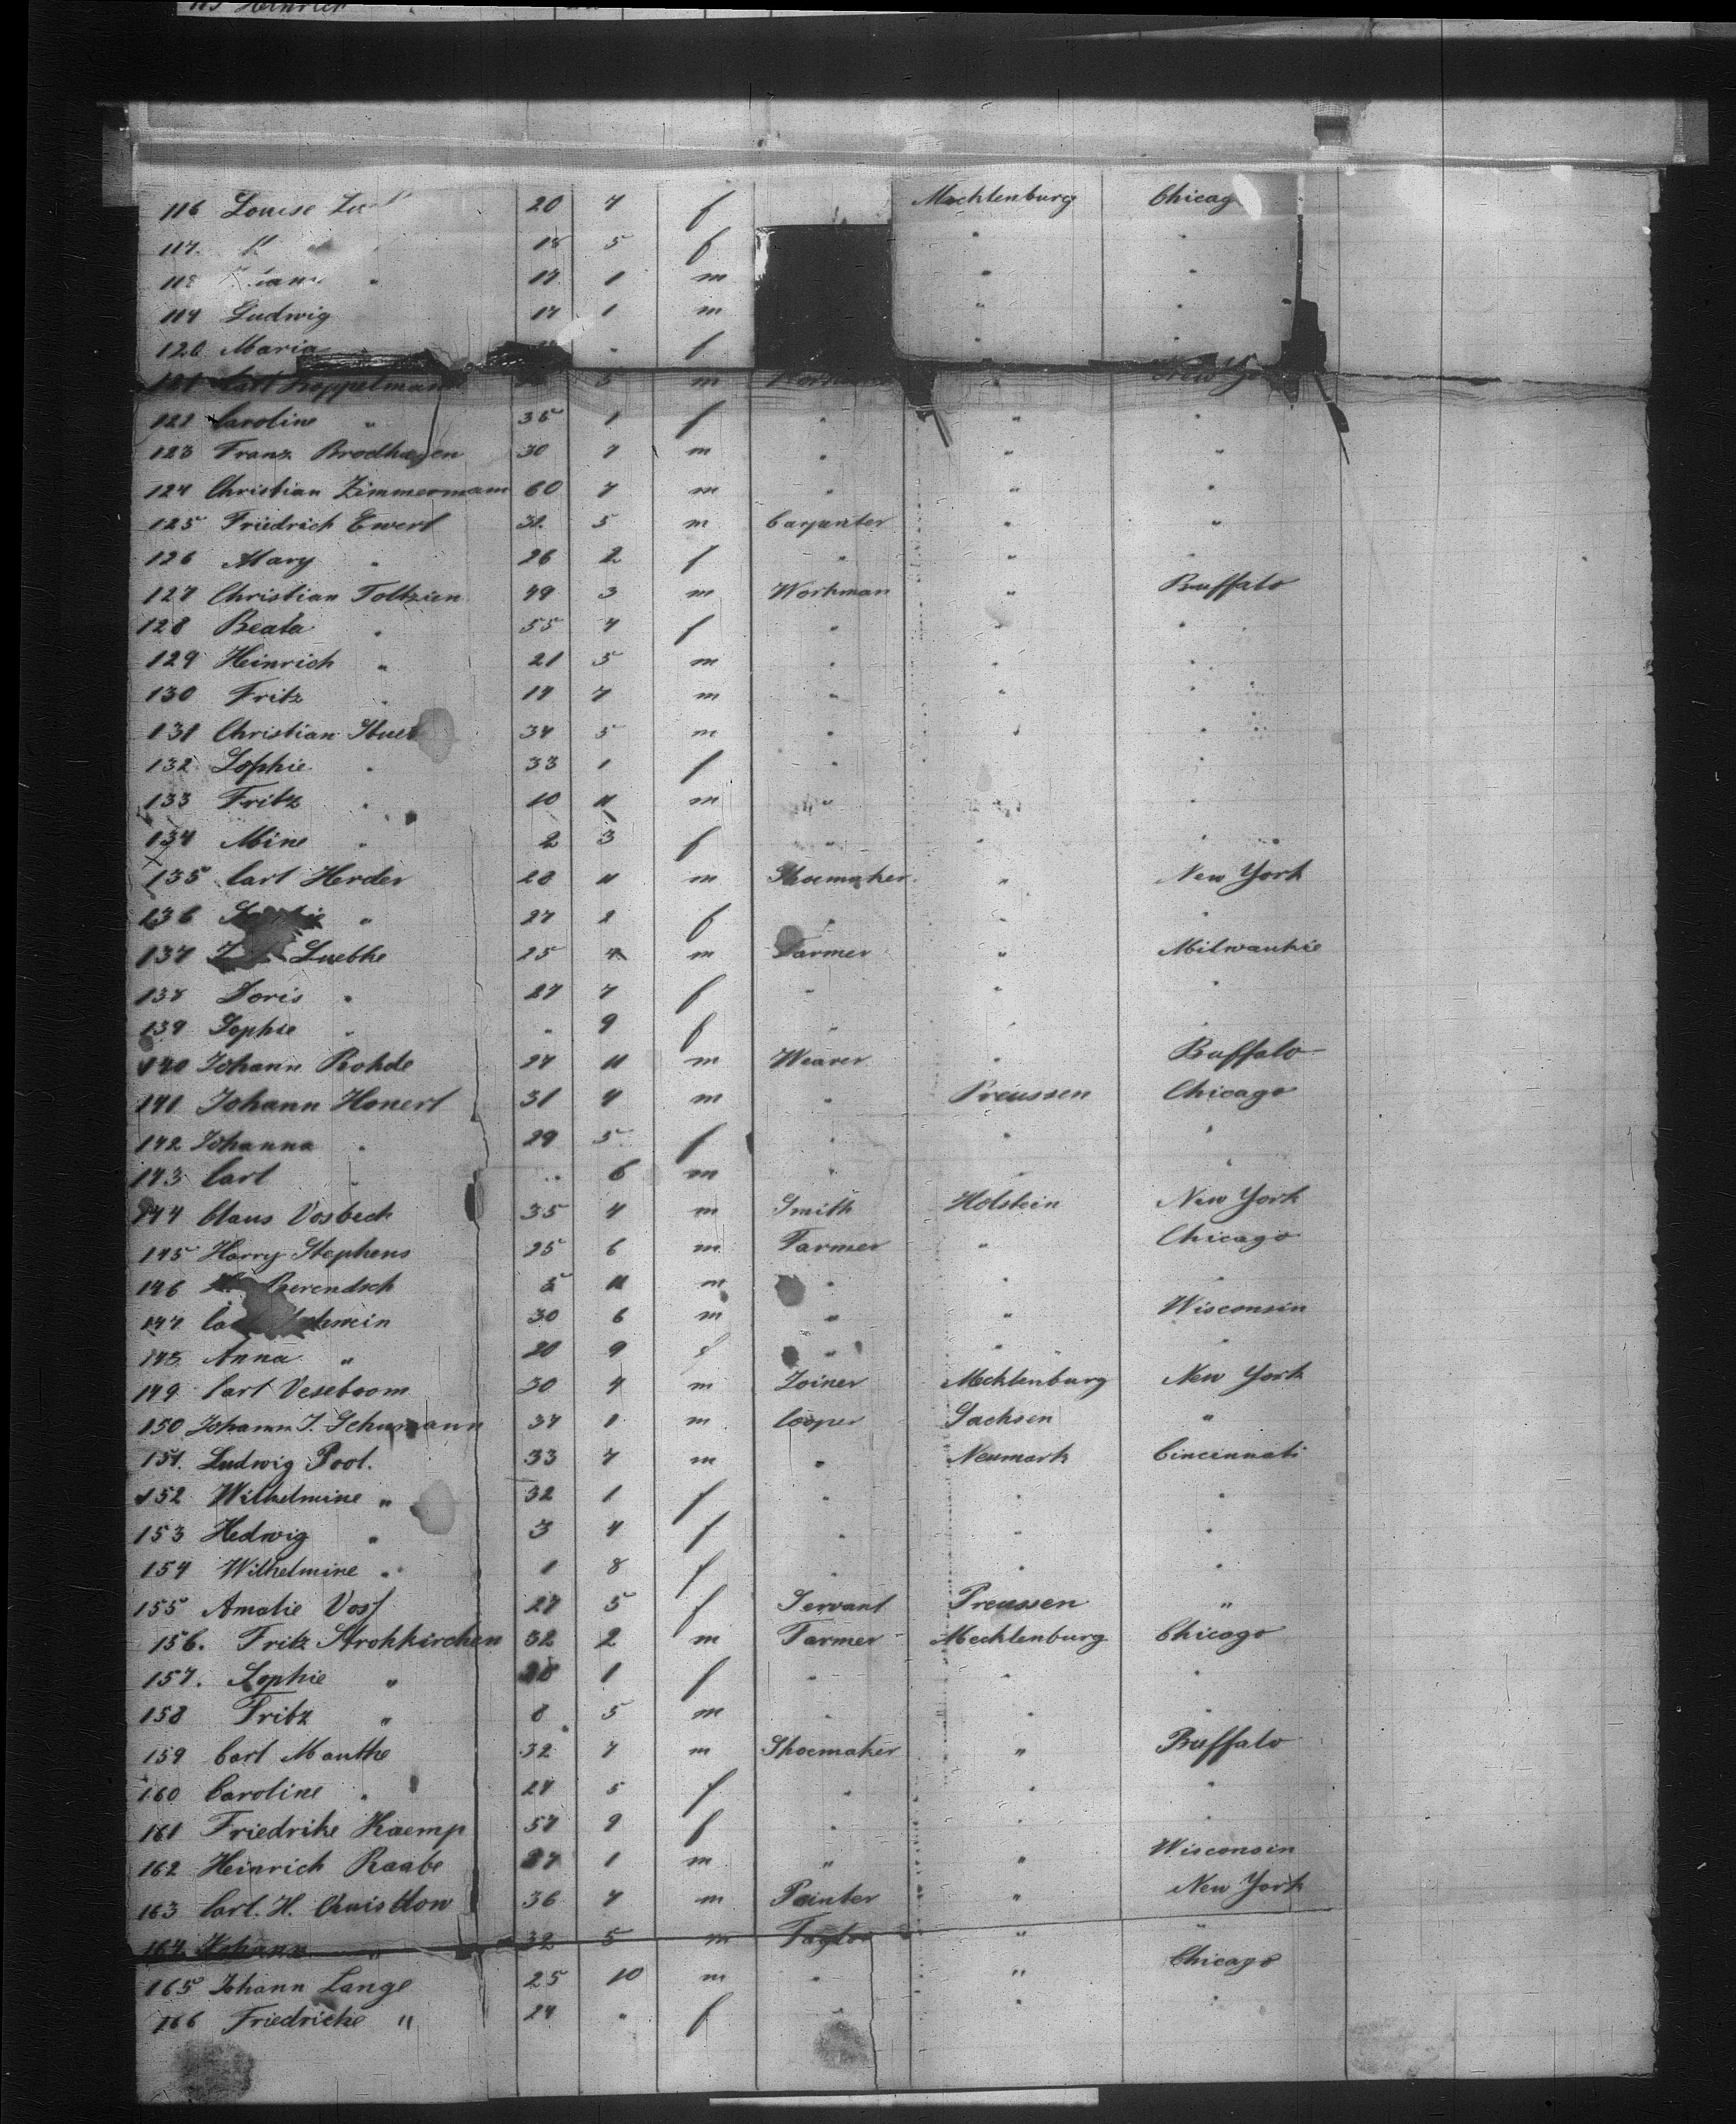 116 Louise 20 7 f Mecklenburg Chicag
117. " 18 5 f " "
118 " 17 1 m " "
119 Ludwig 17 1 m " "
120 Maria " f " "
121 Carl Koppelmann 3 m " New Yo
122 Caroline " 35 1 f " " "
123 Franz Brodhagen 30 7 m " " "
124 Christian Zimmermann 60 7 m " " "
125 Friedrich Ewert 31. 5 m Carpenter " "
126 Mary " 26 2 f " " "
127 Christian Toltzien 49 3 m Workman " Buffalo
128 Beata " 55 4 f " " "
129 Heinrich " 21 5 m " " "
130 Fritz " 17 7 m " " "
131 Christian 34 5 m " " "
132 Sophie " 33 1 f " " "
133 Fritz " 10 11 m " " "
134 Mine " 2 3 f " " "
135 Carl Herder 28 11 m Shumaker " New York
136 " 27 2 f " " "
137 Luebke 25 m Farmer " Milwaukie
138 Doris " 27 7 f " " "
139 Sophie " " 9 f " " "
140 Johann Rohde 27 11 m Weaver " Buffalo
141 Johann Honert 31 4 m " Preussen Chicago
142 Johanna " 29 5 f " " "
143 Carl " " 6 m " " "
144 Claus Vosbeck 35 4 m Smith Holstein New York
145 Harry Stephens 25 6 m Farmer " Chicago
146 Berendsch 11 m " " "
147 30 6 m " " Wisconsin
148 Anna " 20 9 f " " "
149 Carl Veseboom 30 4 m Joiner Mecklenburg New York
150 Johann J. Schumann 37 1 m Cooper Sachsen "
151. Ludwig Pool. 33 7 m " Neumark Cincinnati
152 Wilhelmine " 32 1 f " " "
153 Hedwig " 3 4 f " " "
154 Wilhelmine " 1 8 f " " "
155 Amalie Voss 27 5 f Servant Preussen "
156. Fritz Strohkirchen 32 2 m Farmer Mecklenburg Chicago
157. Sophie " 28 1 f " " "
158 Fritz " 8 5 m " " "
159 Carl Manthe 32 7 m Shoemaker " Buffalo
160 Caroline " 27 5 f " " "
161 Friedrike Kaemp 57 9 f " " "
162 Heinrich Raabe 27 1 m " " Wisconsin
163 Carl. H. 36 7 m Painter " New York
164 Johann " 32 5 m Taylor " "
165 Johann Lange 25 10 m " " Chicago
166 Friedriche " 24 " f " " "